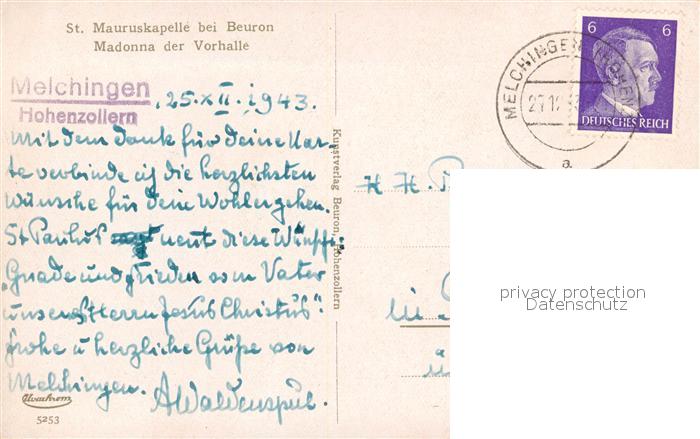 St. Mauruskapelle bei Beuron
Madonna der Vorhalle
Melchingen
Hohenzollern
25.XII.1943.
Mit dem Dank für deine Kar-
te verbinde ich die herzlichsten
Wünsche für dein Wohlergehen.
St Paulus nent diese Wünsche:
"Gnade und Frieden vom Vater
unseres Herrn Jesus Christus".
Frohe u herzliche Grüße von
Melchingen. AWaldenspul.
Uvachrom
5253
Kunstverlag Beuron, Hohenzollern
MELCHINGEN
a
6 6
DEUTSCHES REICH
H H.
in
privacy protection
Datenschutz